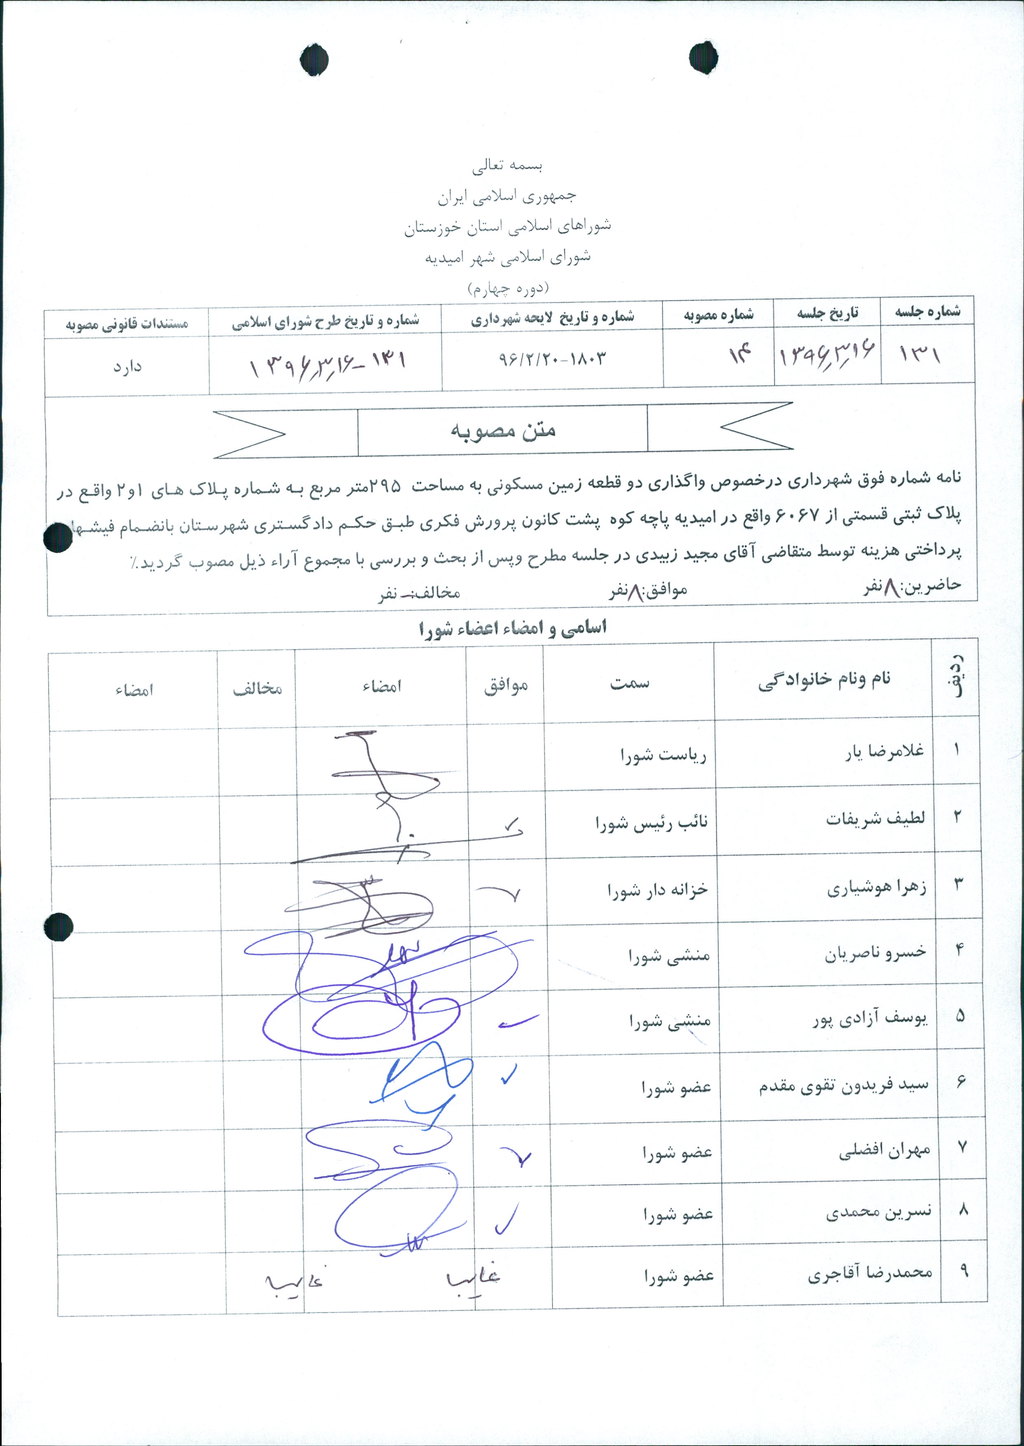 بسمه تعالی
جمهوری اسلامی ایران
شوراهای اسلامی استان خوزستان
شورای اسلامی شهر امیدیه
(دوره چهارم)
شماره جلسه تاریخ جلسه شماره مصوبه شماره و تاریخ لایحه شهرداری شماره و تاریخ طرح شورای اسلامی مستندات قانونی مصوبه
۱۳۱ ۱۳۹۶٫۳٫۱۶ ۱۴ ۱۸۰۳-۹۶/۲/۲۰ ۱۳۱-۱۳۹۶٫۳٫۱۶ دارد
متن مصوبه
نامه شماره فوق شهرداری درخصوص واگذاری دو قطعه زمین مسکونی به مساحت ۲۹۵متر مربع به شماره پلاک های ۱و۲ واقع در
پلاک ثبتی قسمتی از ۶۰۶۷ واقع در امیدیه پاچه کوه پشت کانون پرورش فکری طبق حکم دادگستری شهرستان بانضمام فیشها
پرداختی هزینه توسط متقاضی آقای مجید زبیدی در جلسه مطرح وپس از بحث و بررسی با مجموع آراء ذیل مصوب گردید.٪
حاضرین:۸نفر موافق:۸نفر مخالف:-نفر
اسامی و امضاء اعضاء شورا
ردیف نام ونام خانوادگی سمت موافق امضاء مخالف امضاء
۱ غلامرضا یار ریاست شورا
۲ لطیف شریفات نائب رئیس شورا
۳ زهرا هوشیاری خزانه دار شورا
۴ خسرو ناصریان منشی شورا
۵ یوسف آزادی پور منشی شورا
۶ سید فریدون تقوی مقدم عضو شورا
۷ مهران افضلی عضو شورا
۸ نسرین محمدی عضو شورا
۹ محمدرضا آقاجری عضو شورا غایب غایب